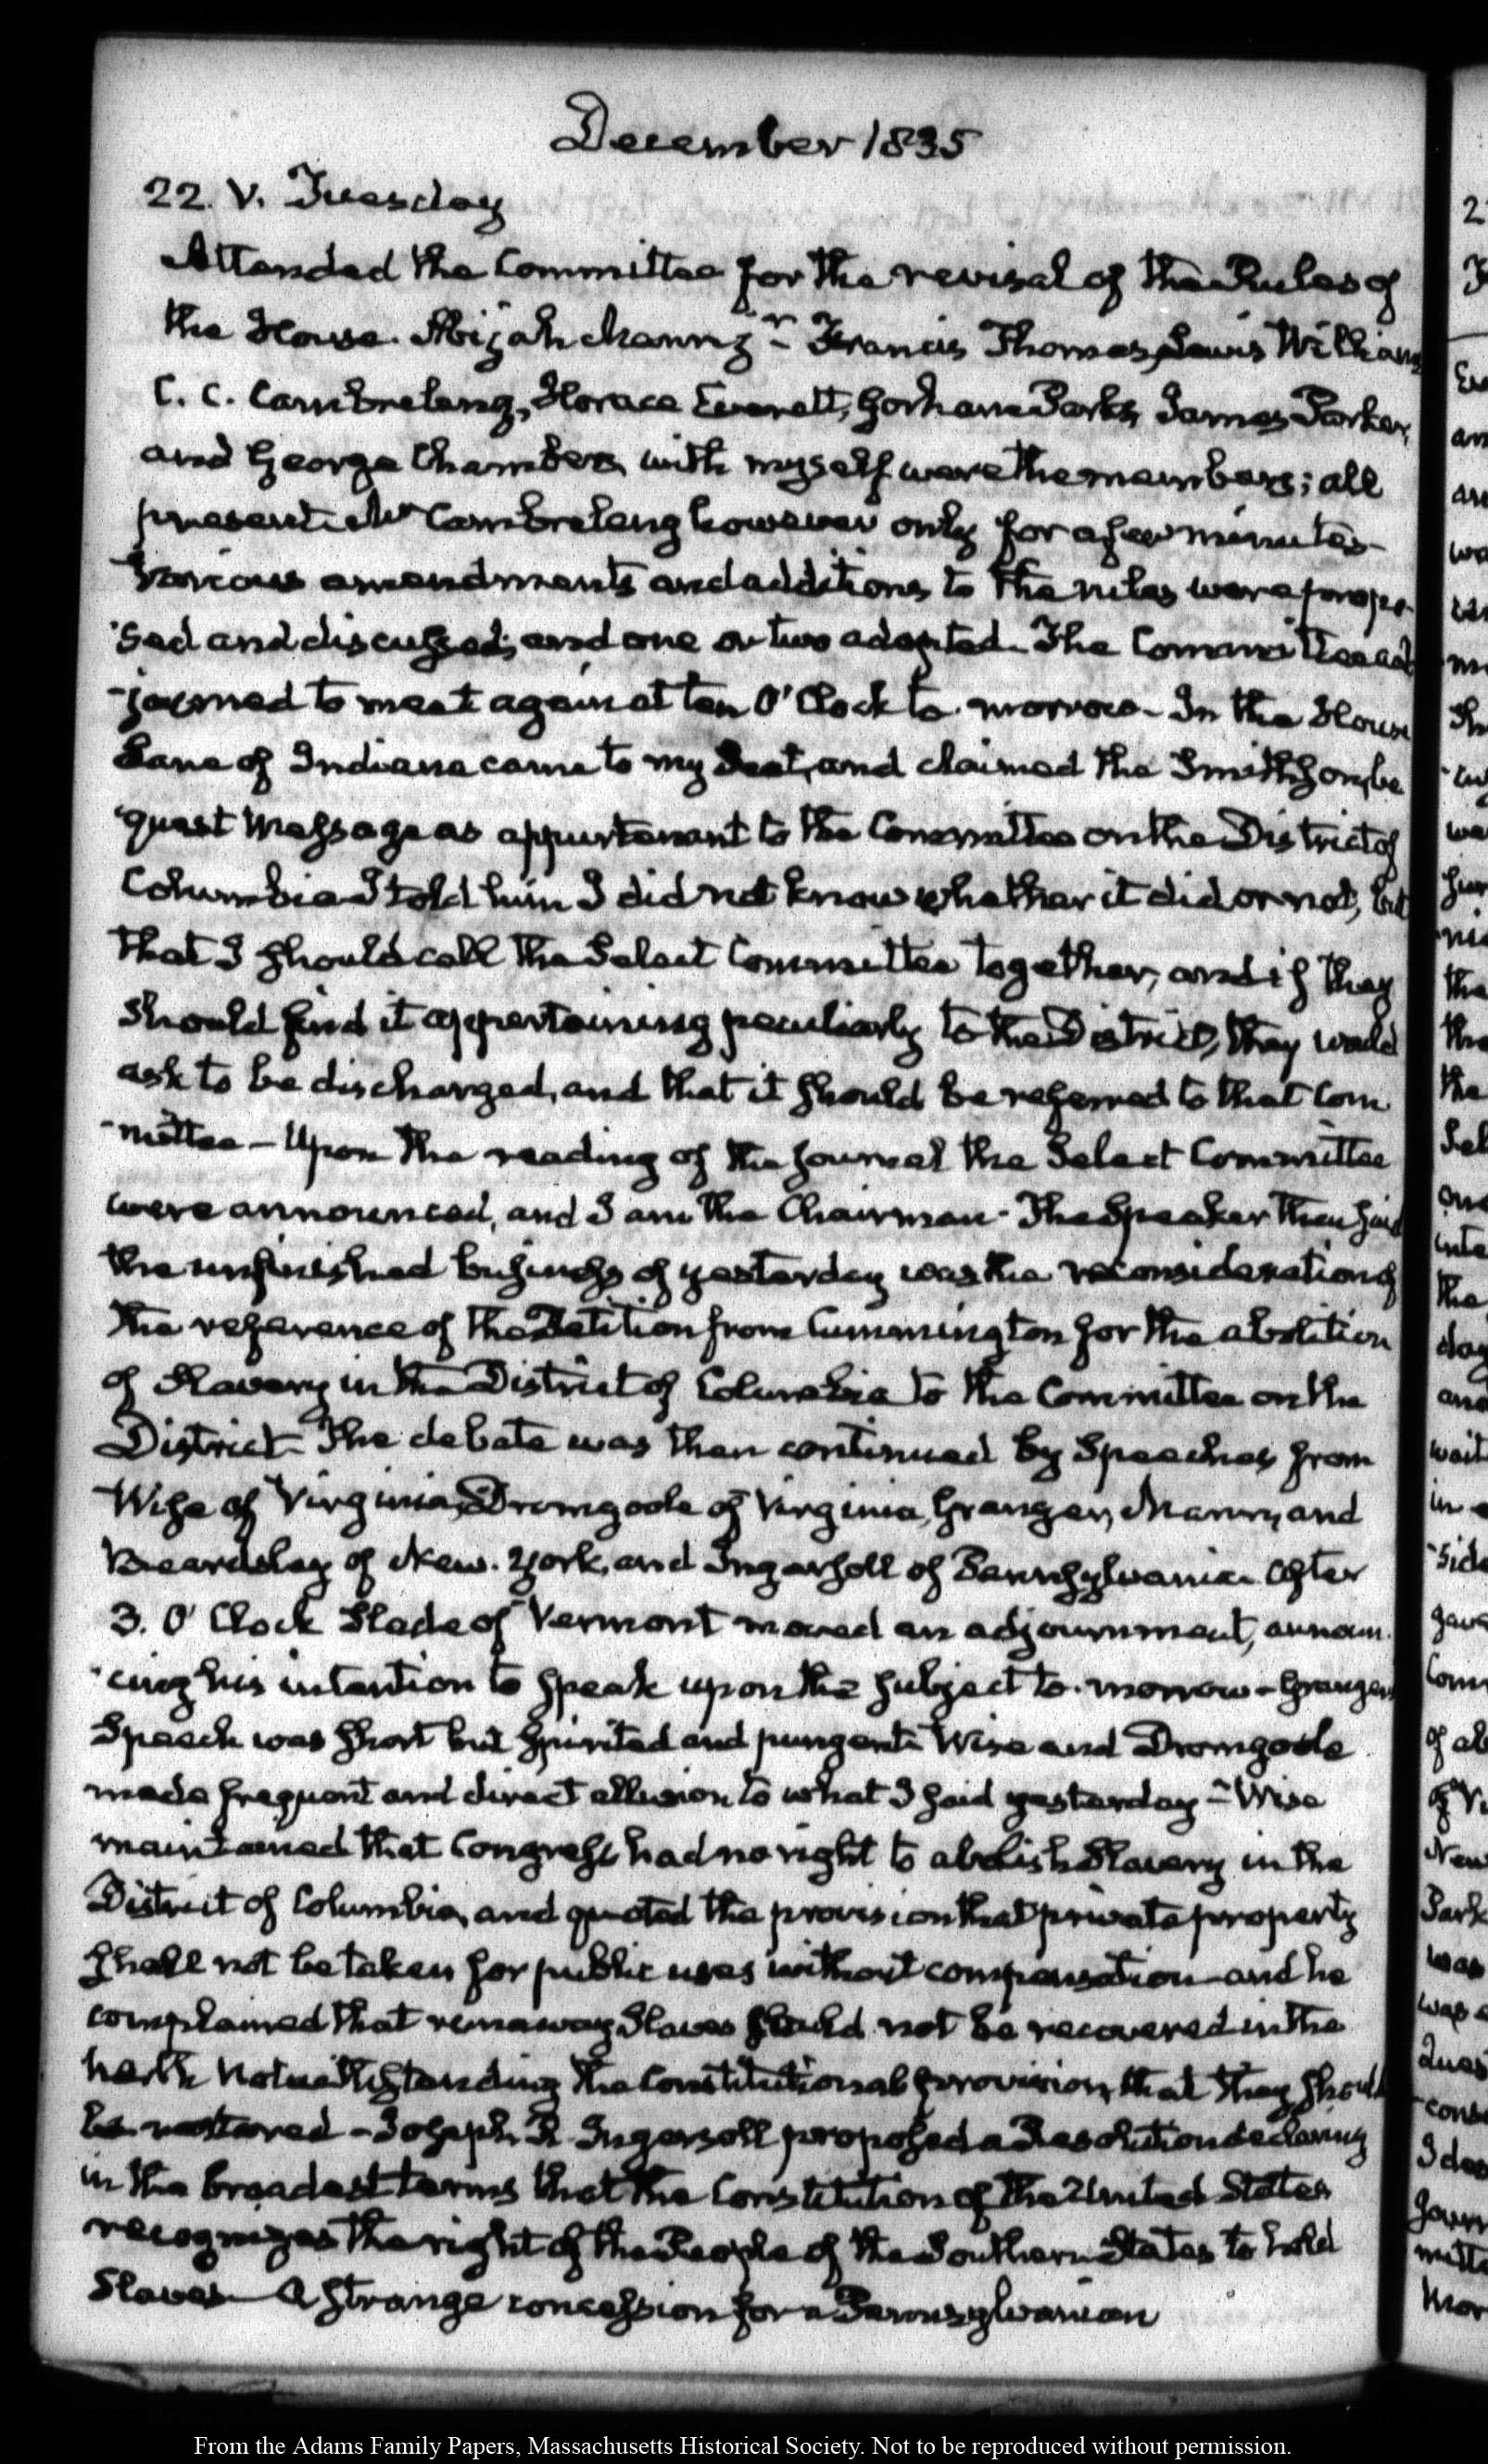 December 1835
22. V. Tuesday
Attended the Committee for the revisal of the Rules of
the House. Abijah Mann jr Francis Thomas, Lewis Williams
C. C. Cambreleng, Horace Everett, Gorham Parks, James Parker,
and George Chambers, with myself were the members; all
present. Mr Cambreleng however only for a few minutes—
Various amendments and additions to the rules were propo-
-sed and discussed; and one or two adopted. The Committee ad
-journed to meet again at ten O'Clock to-morrow— In the House
Lane of Indiana came to my Seat, and claimed the Smithson, be
-quest Message as appurtenant to the Committee on the District of
Columbia I told him I did not know whether it did or not, but
that I should call the Select Committee together, and if they
should find it appertaining peculiarly to the District, they would
ask to be discharged, and that it should be referred to that Com
-mittee— Upon the reading of the journal the Select Committee
were announced, and I am the Chairman. The Speaker then said
the unfinished business of yesterday was the reconsideration of
the reference of the Petition from Cummington for the abolition
of Slavery in the District of Columbia to the Committee on the
District— The debate was then continued by Speeches from
Wise of Virginia, Dromgoole of Virginia, Granger, Mann, and
Beardsley of New-York, and Ingersoll of Pennsylvania. After
3. O'Clock Slade of Vermont moved an adjournment, announ
-cing his intention to speak upon the subject to-morrow— Granger's
Speech was short but spirited and pungent— Wise and Dromgoole
made frequent and direct allusion to what I said yesterday— Wise
maintained that Congress had no right to abolish Slavery in the
District of Columbia, and quoted the provision that private property
shall not be taken for public uses without compensation—and he
complained that runaway Slaves should not be recovered in the
north notwithstanding the Constitutional provision, that they should
be restored— Joseph R. Ingersoll proposed a Resolution declaring
in the broadest terms that the Constitution of the United States
recognizes the right of the People of the Southern States to hold
Slaves— A strange concession for a Pennsylvanian
From the Adams Family Papers, Massachusetts Historical Society. Not to be reproduced without permission.